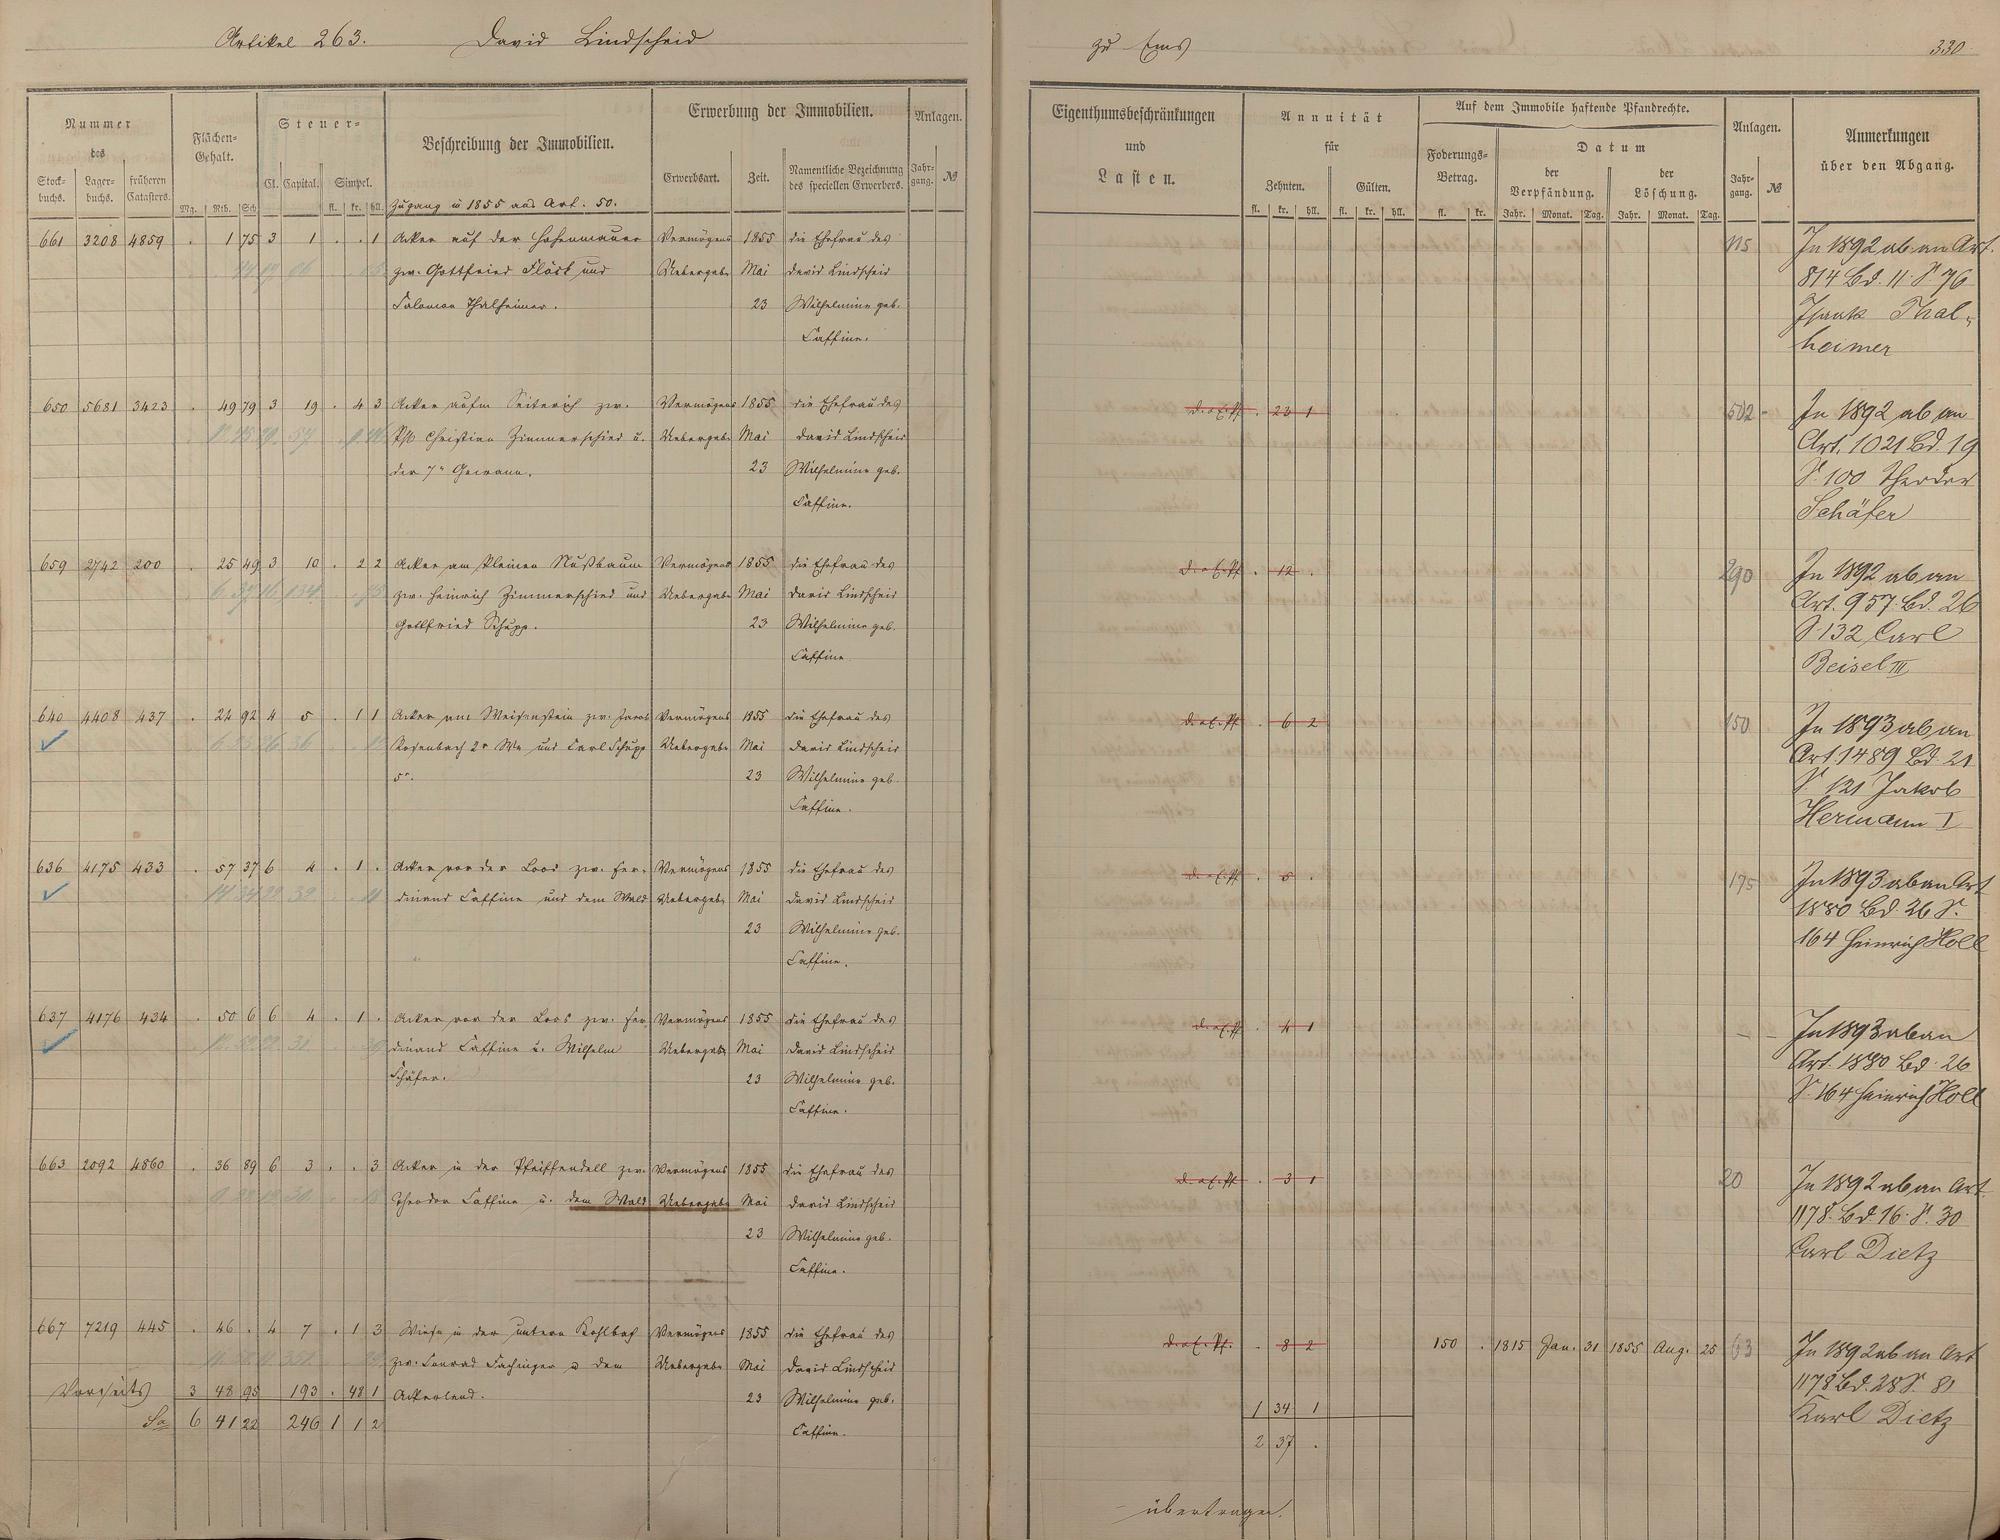 Artikel 263. David Lindscheid
zu Ems
330
Nummer des
Stock-buchs. Lager-buchs. früheren Catasters.
Flächen-Gehalt.
Mg. Rth. Sch
Steuer-
Cl. Capital. Simpel.
fl. kr. hll.
Beschreibung der Immobilien.
Zugang in 1855 aus Art. 50.
Erwerbung der Immobilien.
Erwerbsart. Zeit. Namentliche Bezeichnung des speciellen Erwerbers.
Anlagen.
Jahr-gang. №
Eigenthumsbeschränkungen und Lasten.
Annuität für
Zehnten. Gülten.
fl. kr. hll. fl. kr. hll.
Auf dem Immobile haftende Pfandrechte.
Foderungs-Betrag.
fl. kr.
Datum
der Verpfändung. der Löschung.
Jahr. Monat. Tag. Jahr. Monat. Tag.
Anlagen.
Jahr-gang. №
Anmerkungen über den Abgang.
661 3208 4859 . 1 75 3 1 . . 1 Acker auf der Hohenmauer Vermögens 1855 die Ehefrau des
zw. Gottfried Flöck und Uebergabe Mai David Lindscheid
Salomon Thalheimer. 23 Wilhelmine geb.
Caffine.
115 In 1892 ab an Art.
814 Bd. 11 S. 76
Isaak Thal-
heimer
650 5681 3423 . 49 79 3 19 . 4 3 Acker aufm Seiterich zw. Vermögens 1855 die Ehefrau des
Christian Zimmerschied u. Uebergabe Mai David Lindscheid
der 7n Gewann. 23 Wilhelmine geb.
Caffine.
d. a. E. Pf. . 23 1
502 - In 1892 ab an
Art. 1021 Bd. 19
S. 100 Theodor
Schäfer
659 2742 200 . 25 49 3 10 . 2 2 Acker am kleinen Nußbaum Vermögens 1855 die Ehefrau des
zw. Heinrich Zimmerschied und Uebergabe Mai David Lindscheid
Gottfried Schupp. 23 Wilhelmine geb.
Caffine
d. a. E. Pf. . 12 .
290 In 1892 ab an
Art. 957 Bd. 26
S. 132 Carl
Beisel III
640 4408 437 . 24 92 4 5 . 1 1 Acker am Weisenstein zw. Jacob Vermögens 1855 die Ehefrau des
Rosenbach 2r We und Carl Schupp Uebergabe Mai David Lindscheid
5r. 23 Wilhelmine geb.
Caffine.
d. a. E. Pf. . 6 2
150 In 1893 ab an
Art. 1489 Bd. 21
S. 121 Jakob
Hermann I
636 4175 433 . 57 37 6 4 . 1 . Acker vor der Loos zw. Fer- Vermögens 1855 die Ehefrau des
dinand Caffine und dem Wald Uebergabe Mai David Lindscheid
23 Wilhelmine geb.
Caffine.
d. a. E. Pf. . 5 .
175 In 1893 ab an Art
1880 Bd. 26 S.
164 Heinrich Holl
637 4176 434 . 50 6 6 4 . 1 . Acker vor der Loos zw. Fer- Vermögens 1855 die Ehefrau des
dinand Caffine u. Wilhelm Uebergabe Mai David Lindscheid
Schäfer. 23 Wilhelmine geb.
Caffine.
d. a. E. Pf. . 4 1
- - In 1893 ab an
Art. 1880 Bd. 26
S. 164 Heinrich Holl
663 2092 4860 . 36 89 6 3 . . 3 Acker in der Pfeiffendell zw. Vermögens 1855 die Ehefrau des
Theodor Caffine u. dem Wald Uebergabe Mai David Lindscheid
23 Wilhelmine geb.
Caffine.
d. a. E. Pf. . 3 1
20 In 1892 ab an Art.
1178. Bd. 16. S. 30
Carl Dietz
667 7219 445 . 46 . 4 7 . 1 3 Wiese in der untern Kohlbach Vermögens 1855 die Ehefrau des
zw. Conrad Fachinger u dem Uebergabe Mai David Lindscheid
Ackerland. 23 Wilhelmine geb.
Caffine.
d. a. E. Pf. . 8 2 150 . 1815 Jan. 31 1855 Aug. 25 63
In 1892 ab an Art
1178 Bd. 28 S. 81
Karl Dietz
Vorseits 3 48 95 193 . 48 1
1 34 1
Sa 6 41 22 246 1 1 2
2 37 .
übertragen.